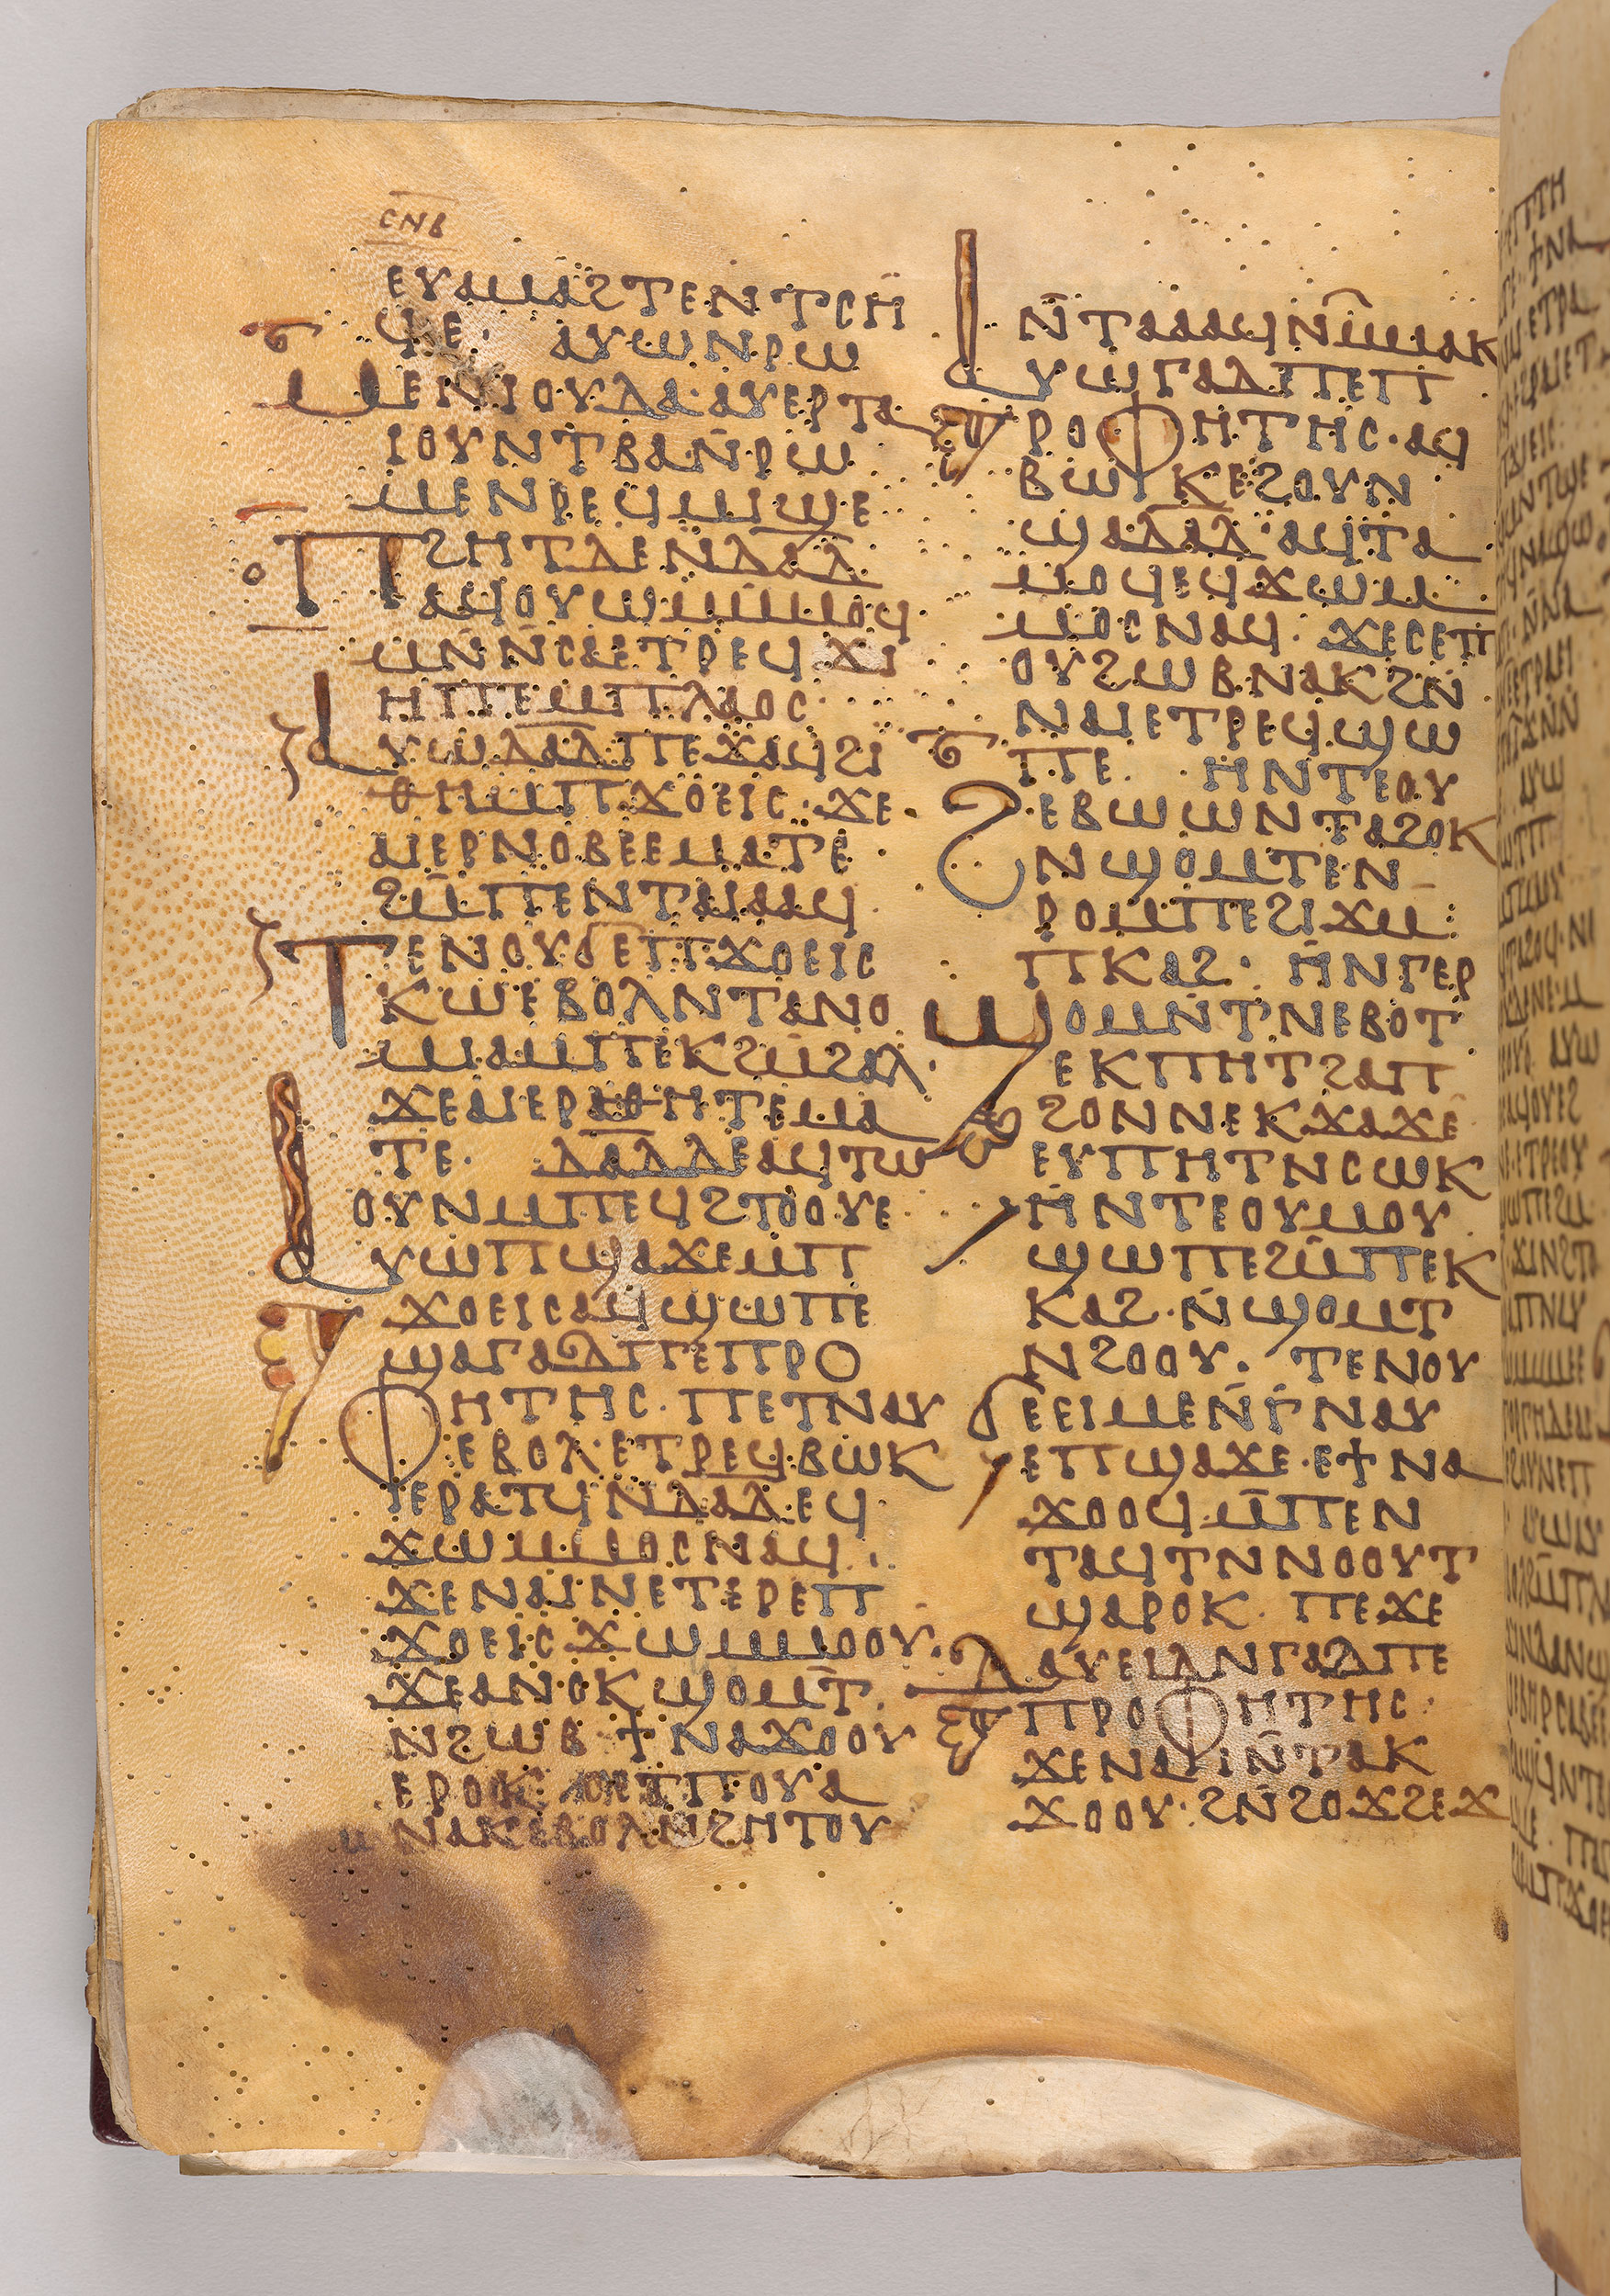 ⲤⲚⲂ
ⲈⲨⲀⲘⲀϨⲦⲈⲚⲦⲤⲎ
ϤⲈ· ⲀⲨⲰⲚⲢⲰ
ⲘⲈⲚⲒⲞⲨⲆⲀ·ⲀⲨⲈⲢⲦⲀ
ⲒⲞⲨⲚⲦⲂⲀ·Ⲛ̄ⲢⲰ
ⲘⲈⲚⲢⲈϤⲘⲒϢⲈ
ⲠϨⲎⲦⲆⲈⲚⲆⲀⲆ
ⲀϤⲞⲨⲰⲘⲘ̄ⲘⲞϤ
ⲘⲚ̄Ⲛ̄ⲤⲀⲈⲦⲢⲈϤϪⲒ
ⲎⲠⲠⲈⲘⲠⲖⲀⲞⲤ·
ⲀⲨⲰⲆⲀⲆⲠⲈϪⲀϤϨⲒ
ⲐⲎⲘⲠϪⲞⲈⲒⲤ·ϪⲈ·
ⲀⲒⲈⲢⲚⲞⲂⲈⲈⲘⲀⲦⲈ·
ϨⲘ̄ⲠⲈⲚⲦⲀⲒⲀⲀϤ·
ⲦⲈⲚⲞⲨϬⲈⲠϪⲞⲈⲒⲤ
ⲔⲰⲈⲂⲞⲖⲚⲦⲀⲚⲞ
ⲘⲒⲀⲘⲠⲈⲔϨⲘ̄ϨⲀⲖ·
ϪⲈⲀⲒⲈⲢⲀⲐⲎⲦⲈⲘⲀ
ⲦⲈ· ⲆⲀⲆⲆⲈⲀϤⲦⲰ
ⲞⲨⲚⲘⲠⲈϤϨⲦⲞⲞⲨⲈ·
ⲀⲨⲰⲠϢⲀϪⲈⲘⲠ
ϪⲞⲈⲒⲤⲀϤϢⲰⲠⲈ
ϢⲀⲄⲀⲆⲠⲈⲠⲢⲞ
ⲪⲎⲦⲎⲤ·ⲠⲈⲦⲚⲀⲨ
ⲈⲂⲞⲖ·ⲈⲦⲢⲈϤⲂⲰⲔ
ⲈⲢⲀⲦϤⲚⲆⲀⲆ·ⲈϤ·
ϪⲰⲘⲘⲞⲤⲚⲀϤ·
ϪⲈⲚⲀⲒⲚⲈⲦⲈⲢⲈⲠ
ϪⲞⲈⲒⲤϪⲰⲘⲘⲞⲞⲨ·
ϪⲈⲀⲚⲞⲔϢⲞⲘⲦ·
ⲚϨⲰⲂ ϮⲚⲀϪⲞⲞⲨ
ⲈⲢⲞⲔ· ⲠⲞⲨⲀ
ⲚⲀⲔⲈⲂⲞⲖⲚϨⲎⲦⲞⲨ
Ⲛ̄ⲦⲀⲀⲀϤⲚⲘ̄ⲘⲀⲔ
ⲀⲨⲰⲄⲀⲆⲠⲈⲠ
ⲢⲞⲪⲎⲦⲎⲤ·ⲀϤ
ⲂⲰⲔⲈϨⲞⲨⲚ
ϢⲀⲆⲀⲆ·ⲀϤⲦⲀ
ⲘⲞϤⲈϤϪⲰⲘ
ⲘⲞⲤⲚⲀϤ·ϪⲈⲤⲈⲠ
ⲞⲨϨⲰⲂⲚⲀⲔϨⲚ̄
ⲚⲀⲒⲈⲦⲢⲈϤϢⲰ
ⲠⲈ· ·ⲎⲚⲦⲈⲞⲨ
ϨⲈⲂⲰⲰⲚⲦⲀϨⲞⲔ
ⲚϢⲞⲘⲦⲈⲚ
ⲢⲞⲘⲠⲈϨⲒϪⲘ
ⲠⲔⲀϨ· ⲎⲚⲄⲈⲢ
ϢⲞⲘⲚ̄ⲦⲚⲈⲂⲞⲦ
ⲈⲔⲠⲎⲦϨⲀⲠ
ϨⲞⲚⲚⲈⲔϪⲀϪⲈ
ⲈⲨⲠⲎⲦⲚⲤⲰⲔ
ⲎⲚⲦⲈⲞⲨⲘⲞⲨ
ϢⲰⲠⲈϨⲘ̄ⲠⲈⲔ
ⲔⲀϨ·Ⲛ̄ϢⲞⲘⲦ
ⲚϨⲞⲞⲨ· ⲦⲈⲚⲞⲨ
ϬⲈⲈⲒⲘⲈⲚ̄ⲄⲚⲀⲨ
ⲈⲠϢⲀϪⲈ·ⲈϮⲚⲀ
ϪⲞⲞϤⲘ̄ⲠⲈⲚ
ⲦⲀϤⲦⲚⲚⲞⲞⲨⲦ
ϢⲀⲢⲞⲔ· ⲠⲈϪⲈ
ⲆⲀⲨⲈⲒⲆⲚⲄⲀⲆⲠⲈ
ⲠⲢⲞⲪⲎⲦⲎⲤ·
ϪⲈⲚⲀⲒⲚ̄ⲦⲀⲔ
ϪⲞⲞⲨ·ϨⲚ̄ϨⲞϪϨⲈϪ